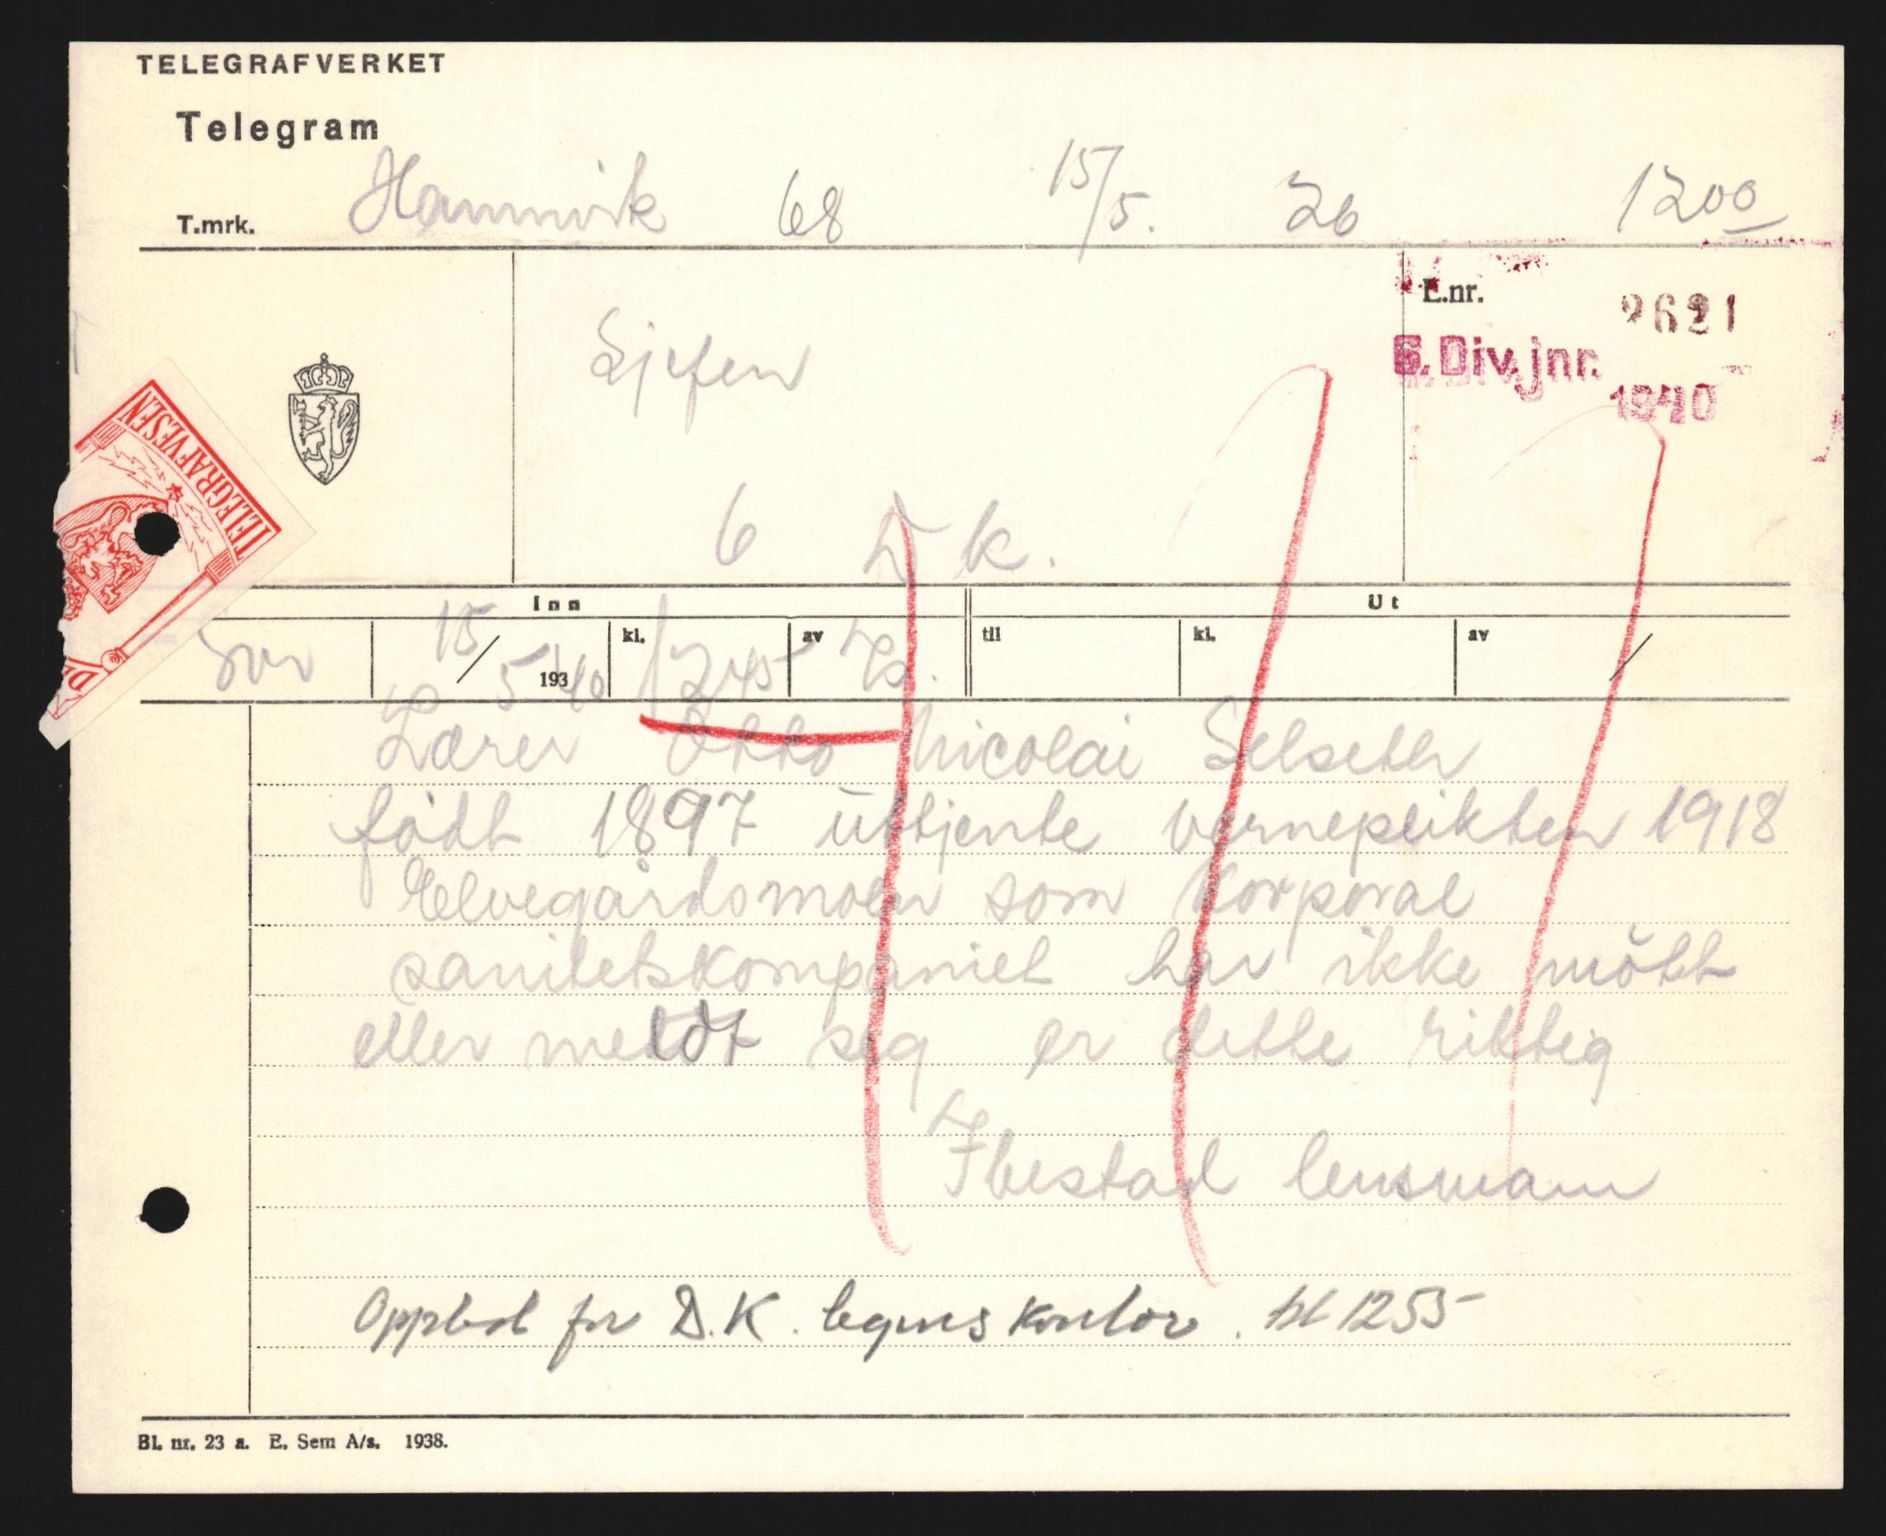 TELEGRAFVERKET
Telegram
T.mrk. Hamnvik 68 15/5. 26 1200
E.nr. 2621
6. Div. jnr.
1940
Sjefen
6 D k.
TELEGRAFVESEN
Inn Ut
15/5 40 193 kl. 1245 av til kl. av /
Lærer Otto Nicolai Selseth
født 1897 uttjente verneplikten 1918
Elvegårdsmoen som korporal
sanitetskompaniet har ikke møtt
eller meldt seg er dette riktig
Ibestad lensmann
Opplest for D.K. legens kontor. kl 1255
Bl. nr. 23 a. E. Sem A/s. 1938.